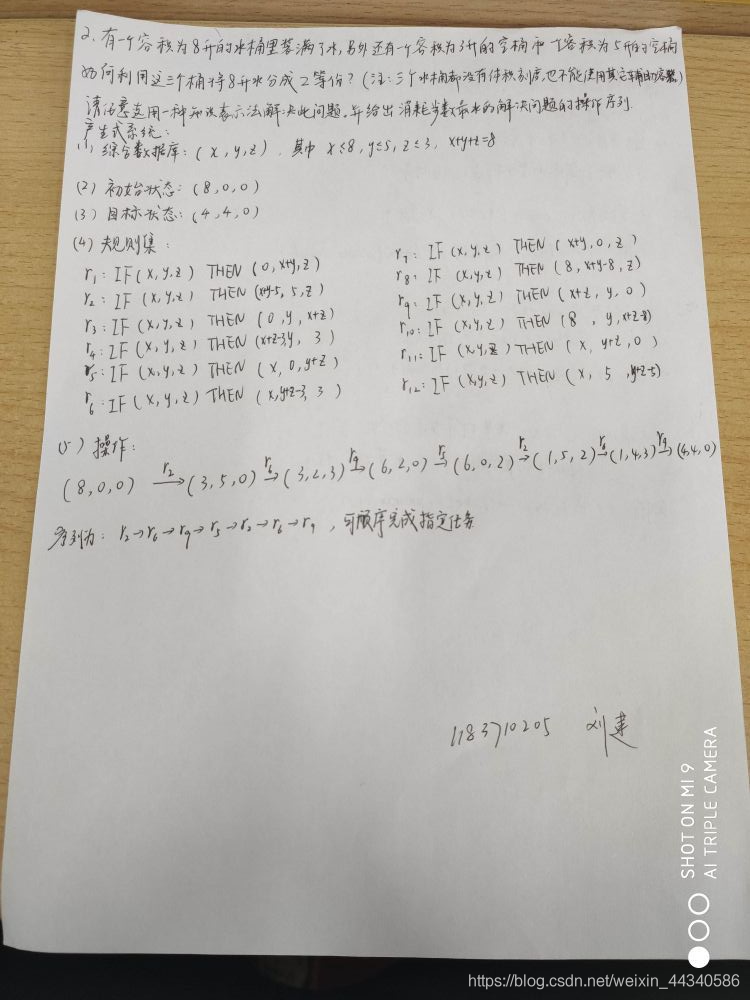 2. 有一个容积为8升的水桶里装满了水,另外还有一个容积为3升的空桶和一个容积为5升的空桶
如何利用这三个桶将8升水分成2等份?(注:三个水桶都没有体积刻度,也不能使用其它辅助容器)
请任意选用一种知识表示法解决此问题,并给出消耗步数最少的解决问题的操作序列.
产生式系统:
(1) 综合数据库:(x,y,z) , 其中 x≤8, y≤5, z≤3, x+y+z=8
(2) 初始状态:(8,0,0)
(3) 目标状态:(4,4,0)
(4) 规则集:
r1: IF (x,y,z) THEN (0,x+y,z)
r2: IF (x,y,z) THEN (x+y-5, 5,z)
r3: IF (x,y,z) THEN (0,y,x+z)
r4: IF (x,y,z) THEN (x+z-3,y, 3)
r5: IF (x,y,z) THEN (x,0,y+z)
r6: IF (x,y,z) THEN (x,y+z-3, 3)
r7: IF (x,y,z) THEN (x+y,0,z)
r8: IF (x,y,z) THEN (8,x+y-8,z)
r9: IF (x,y,z) THEN (x+z,y,0)
r10: IF (x,y,z) THEN (8,y,x+z-8)
r11: IF (x,y,z) THEN (x,y+z,0)
r12: IF (x,y,z) THEN (x,5,y+z-5)
(5) 操作:
(8,0,0) r2→ (3,5,0) r6→ (3,2,3) r9→ (6,2,0) r5→ (6,0,2) r2→ (1,5,2) r6→ (1,4,3) r9→ (4,4,0)
序列为: r2→r6→r9→r5→r2→r6→r9 , 可顺序完成指定任务
1183710205 刘建
SHOT ON MI 9
AI TRIPLE CAMERA
https://blog.csdn.net/weixin_44340586